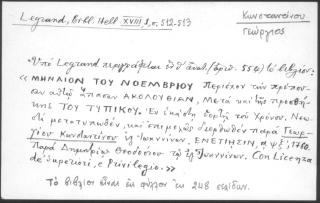 Legrand, Bibl. Hell. XVIII, 1, σ. 512-513
Κωνσταντίνου
Γεώργιος
Ὑπὸ Legrand περιγράφεται ὑπ' ἀριθ. 554) τὸ βιβλίον:
« ΜΗΝΑΙΟΝ ΤΟΥ ΝΟΕΜΒΡΙΟΥ Περιέχον τὴν πρέπου-
σαν αὐτῷ ἅπασαν ΑΚΟΛΟΥΘΙΑΝ, Μετὰ καὶ τῆς προσθή-
κης ΤΟΥ ΤΥΠΙΚΟΥ. Ἐν ἑκάστῃ ἑορτῇ τοῦ Χρόνου. Νεω-
στὶ μετατυπωθέν, καὶ ἐπιμελῶς διορθωθὲν παρὰ Γεωρ-
γίου Κωνσταντίνου ἐξ Ἰωαννίνων. ΕΝΕΤΙΗΣΙΝ, αψξ', 1760.
Παρὰ Δημητρίῳ Θεοδοσίου τῷ ἐξ Ἰωαννίνων. Con Licenza
de' Superiori, e Privilegio. »
Τὸ βιβλίον εἶναι εἰς φύλλον ἐκ 248 σελίδων.